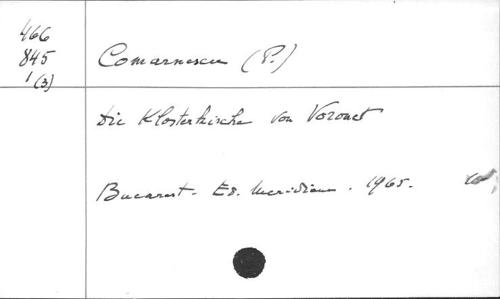 466
845
1 (3)
Comarnescu (P.)
Die Klosterkirche von Voronet
Bucarest - Ed. Meridiane . 1965.